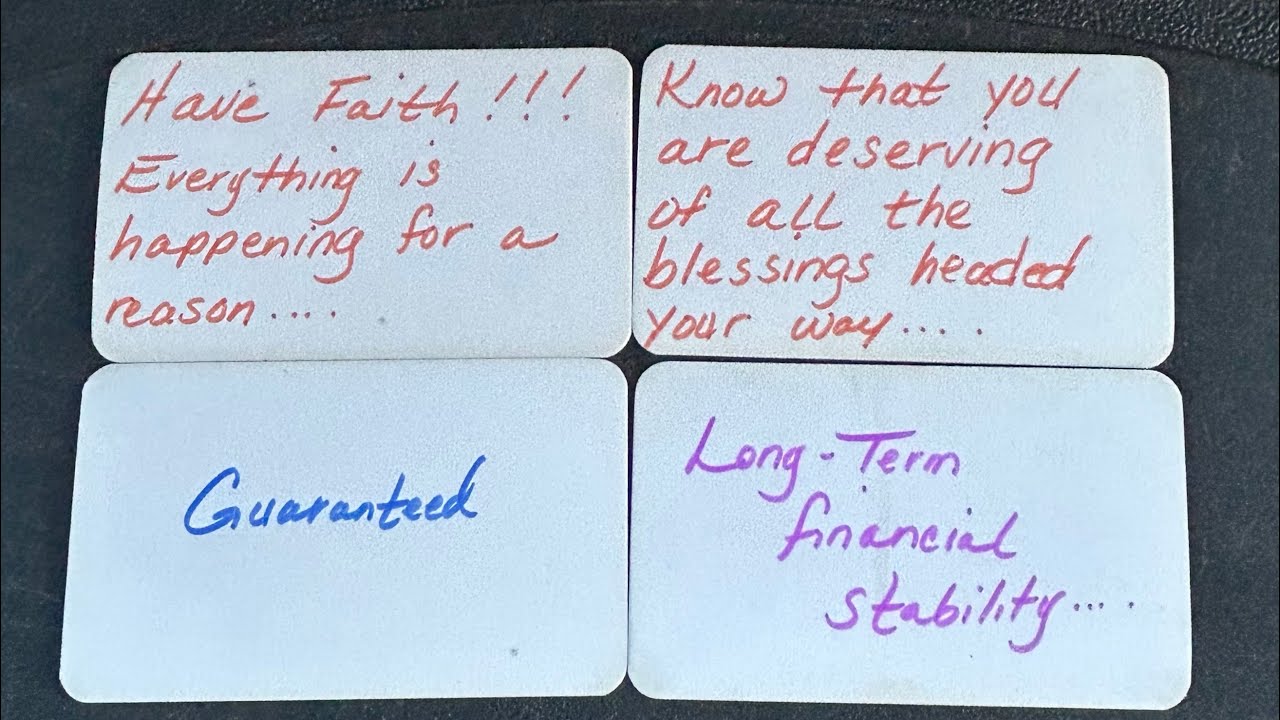 Have Faith!!!
Everything is
happening for a
reason....
Know that you
are deserving
of all the
blessings headed
your way....
Guaranteed
Long-Term
financial
stability....